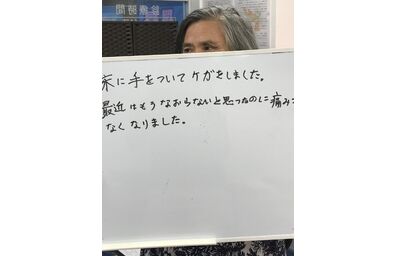 診療時間
床に手をついてケガをしました。
最近はもうなおらないと思ったのに痛み
なくなりました。